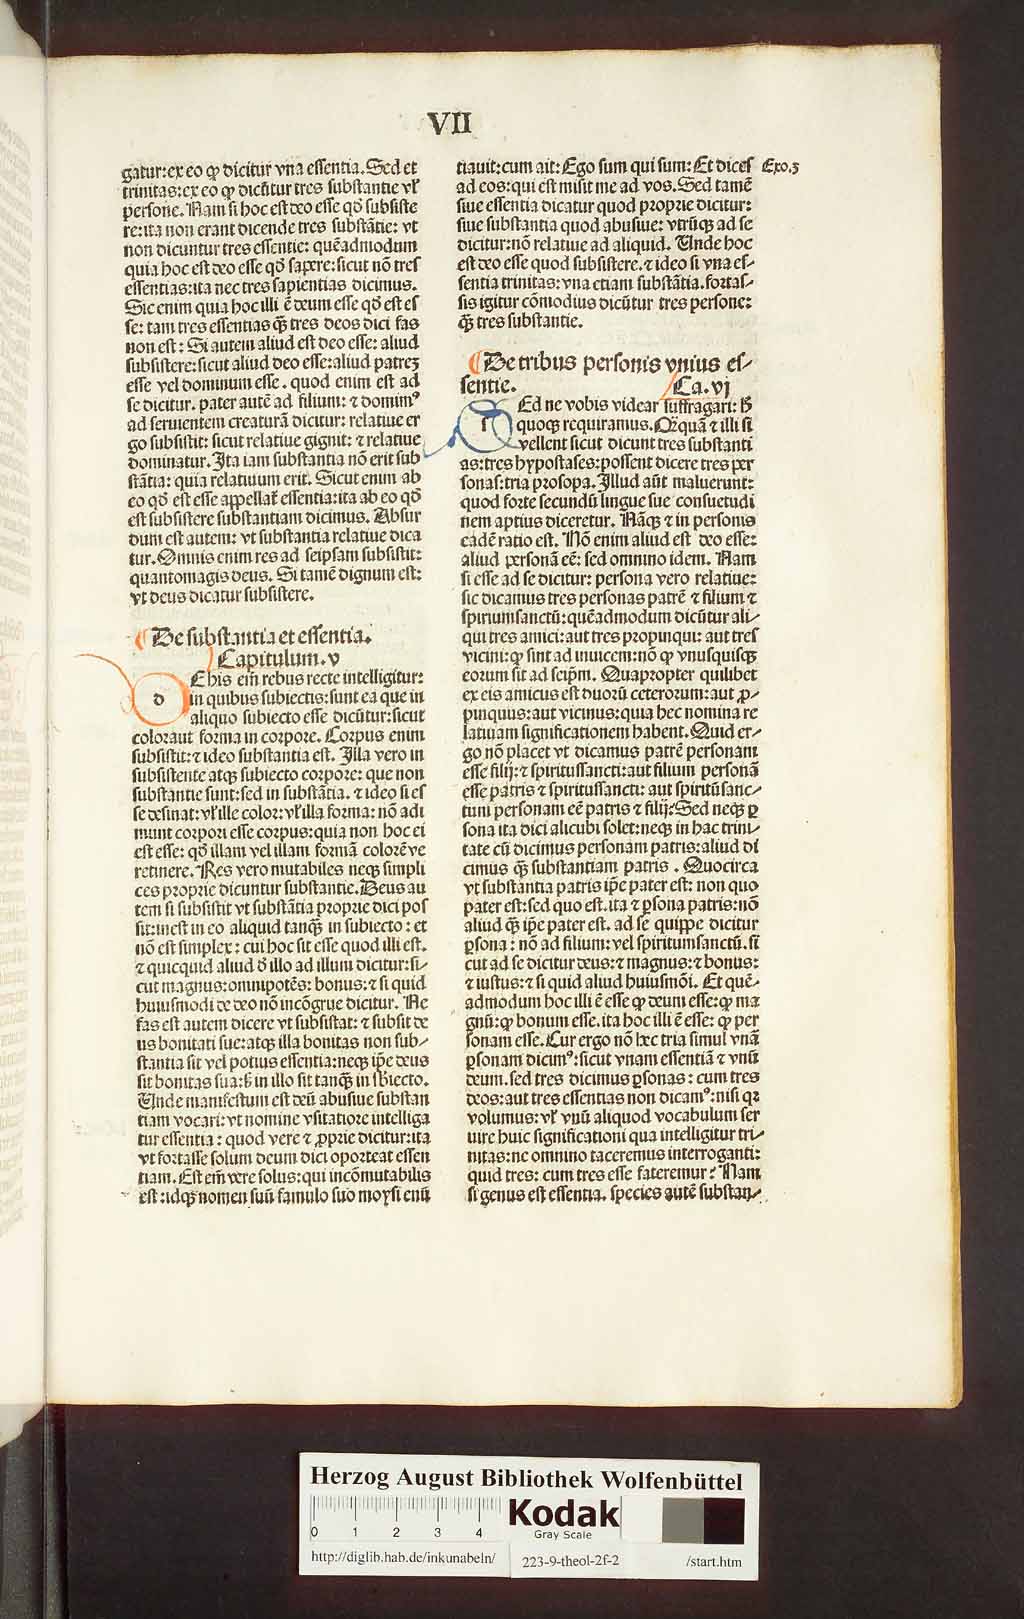 VII
gatur:ex eo ꝙ dicitur vna essentia. Sed et
trinitas:ex eo ꝙ dicũtur tres substantie vl̛
persone. Nam si hoc est deo esse qď subsiste
re:ita non erant dicende tres substãtie: vt
non dicuntur tres essentie: quẽadmodum
quia hoc est deo esse qď sapere:sicut nõ tres
essentias:ita nec tres sapientias dicimus.
Sic enim quia hoc illi ẽ deum esse qď est es
se: tam tres essentias q̃ꝫ tres deos dici fas
non est: Si autem aliud est deo esse: aliud
subsistere:sicut aliud deo esse:aliud patreꝫ
esse vel dominum esse. quod enim est ad
se dicitur. pater autẽ ad filium: ⁊ dominꝰ
ad seruientem creaturã dicitur: relatiue er
go subsistit: sicut relatiue gignit: ⁊ relatiue
dominatur. Ita iam substantia nõ erit sub
stãtia: quia relatiuum erit. Sicut enim ab
eo qď est esse appellat̛ essentia:ita ab eo qď
est subsistere substantiam dicimus. Absur
dum est autem: vt substantia relatiue dica
tur. Omnis enim res ad seipsam subsistit:
quantomagis deus. Si tamẽ dignum est:
vt deus dicatur subsistere.
¶ De substantia et essentia.
Capitulum. v
d Ehis eiñ rebus recte intelligitur:
in quibus subiectis:sunt ea que in
aliquo subiecto esse dicũtur:sicut
coloraut forma in corpore. Corpus enim
subsistit:⁊ ideo substantia est. Illa vero in
subsistente atqꝫ subiecto corpore: que non
substantie sunt:sed in substãtia. ⁊ ideo si es
se desinat: vl̛ ille color: vl̛ illa forma: nõ adi
munt corpori esse corpus:quia non hoc ei
est esse: qď illam vel illam formã colorẽve
retinere. Res vero mutabiles neqꝫ simpli
ces proprie dicuntur substantie. Deus au
tem si subsistit vt substãtia proprie dici pos
sit:inest in eo aliquid tanq̃ꝫ in subiecto: et
nõ est simplex: cui hoc sit esse quod illi est.
⁊ quicquid aliud ď illo ad illum dicitur:si-
cut magnus:omnipotẽs: bonus:⁊ si quid
huiusmodi de deo nõ incõgrue dicitur. Ne
fas est autem dicere vt subsistat: ⁊ subsit de
us bonitati sue:atqꝫ illa bonitas non sub-
stantia sit vel potius essentia:neqꝫ ip̃e deus
sit bonitas sua:s̛ in illo sit tanq̃ꝫ in sb̛iecto.
Unde manifestum est deũ abusiue substan
tiam vocari: vt nomine vsitatiore intelliga
tur essentia: quod vere ⁊ ꝓprie dicitur:ita
vt fortasse solum deum dici oporteat essen
tiam. Est eiñ vere solus:qui incõmutabilis
est:idqꝫ nomen suũ famulo suo moysi enũ
tiauit:cum ait: Ego sum qui sum: Et dices
Exo.3
ad eos:qui est misit me ad vos. Sed tamẽ
siue essentia dicatur quod proprie dicitur:
siue substantia quod abusiue: vtrũqꝫ ad se
dicitur:nõ relatiue ad aliquid. Unde hoc
est deo esse quod subsistere. ⁊ ideo si vna es-
sentia trinitas: vna etiam substãtia. fortas-
sis igitur cõmodius dicũtur tres persone:
q̃ꝫ tres substantie.
¶ De tribus personis vnius es-
sentie. Ca. vj
s Ed ne vobis videar suffragari: h̛
quoqꝫ requiramus. Qꝛquã ⁊ illi si
vellent sicut dicunt tres substanti
as:tres hypostases:possent dicere tres per
sonas:tria prosopa. Illud aũt maluerunt:
quod forte secundũ lingue sue consuetudi
nem aptius diceretur. Nãqꝫ ⁊ in personis
eadẽ ratio est. Nõ enim aliud est deo esse:
aliud personã eẽ: sed omnino idem. Nam
si esse ad se dicitur: persona vero relatiue:
sic dicamus tres personas patrẽ ⁊ filium ⁊
spiritumsanctũ:quẽadmodum dicũtur ali-
qui tres amici:aut tres propinqui: aut tres
vicini: ꝙ sint ad inuicem:nõ ꝙ vnusquisqꝫ
eorum sit ad seip̃m. Quapropter quilibet
ex eis amicus est duorũ ceterorum:aut ꝓ-
pinquus:aut vicinus: quia hec nomina re
latiuam significationem habent. Quid er-
go nõ placet vt dicamus patrẽ personam
esse filij:⁊ spiritussancti:aut filium personã
esse patris ⁊ spiritussancti: aut spiritũsanc-
tum personam eẽ patris ⁊ filij: Sed neqꝫ ꝑ
sona ita dici alicubi solet:neqꝫ in hac trini-
tate cũ dicimus personam patris:aliud di
cimus q̃ꝫ substantiam patris. Quocirca
vt substantia patris ip̃e pater est: non quo
pater est:sed quo est. ita ⁊ ꝑsona patris:nõ
aliud q̃ꝫ ip̃e pater est. ad se quippe dicitur
ꝑsona: nõ ad filium: vel spiritumsanctũ. si
cut ad se dicitur deus:⁊ magnus:⁊ bonus:
⁊ iustus:⁊ si quid aliud huiusmõi. Et quẽ-
admodum hoc illi ẽ esse ꝙ deum esse:ꝙ ma
gnũ:ꝙ bonum esse. ita hoc illi ẽ esse: ꝙ per
sonam esse. Cur ergo nõ hec tria simul vnã
ꝑsonam dicimꝰ:sicut vnam essentiã ⁊ vnũ
deum. sed tres dicimus ꝑsonas: cum tres
deos:aut tres essentias non dicamꝰ:nisi qꝛ
volumus: vl̛ vnũ aliquod vocabulum ser
uire huic significationi qua intelligitur tri-
nitas:ne omnino taceremus interroganti:
quid tres: cum tres esse fateremur? Nam
si genus est essentia. species autẽ substan-
Herzog August Bibliothek Wolfenbüttel
0 1 2 3 4
Kodak
Gray Scale
http://diglib.hab.de/inkunabeln/ 223-9-theol-2f-2 /start.htm